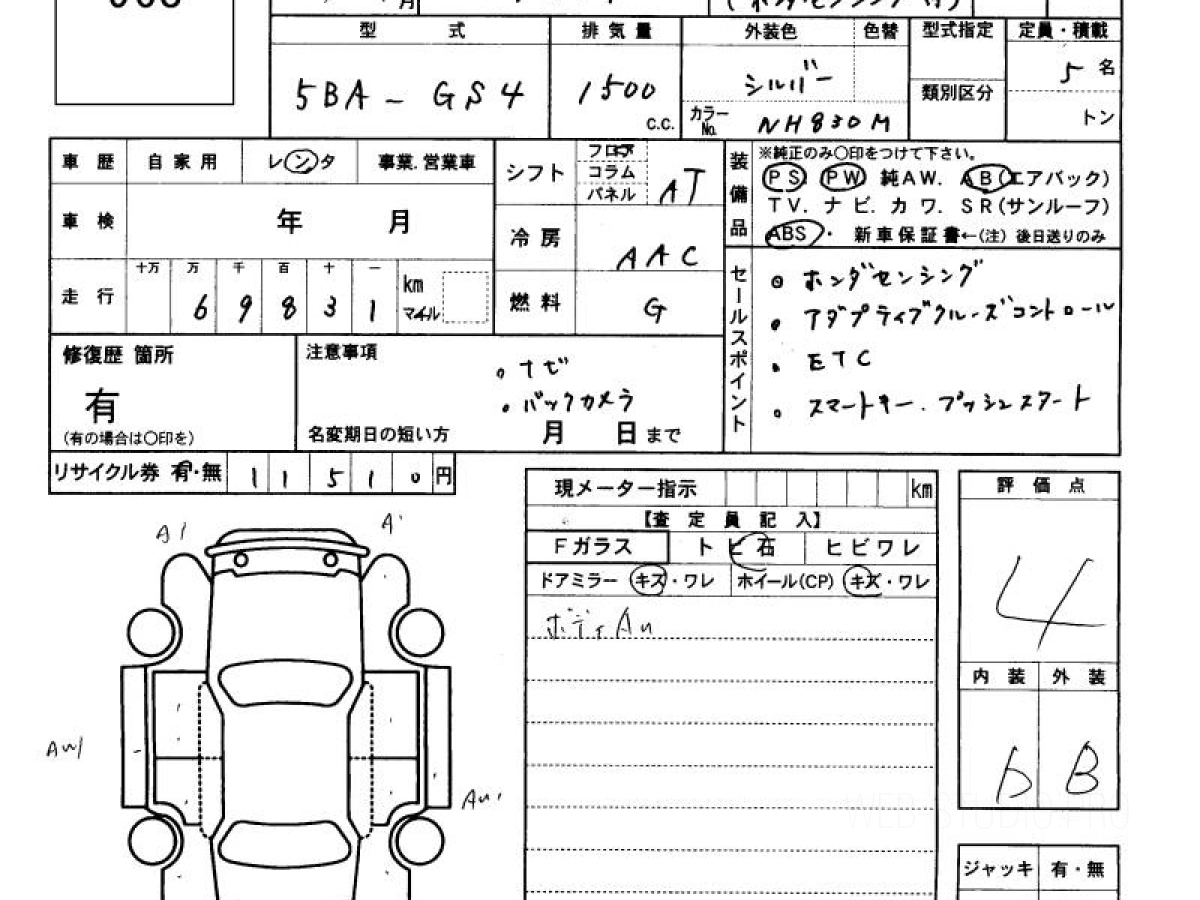 月 (ホンダセンシング付)
型 式 排気量 外装色 色替 型式指定 定員・積載
5BA - GS4 1500 C.C. シルバー 類別区分 5 名
カラーNo. NH830M トン
車歴 自家用 レンタ 事業.営業車
シフト フロア コラム パネル AT
車検 年 月
冷房 AAC
走行 十万 万 千 百 十 一
6 9 8 3 1 km マイル
燃料 G
装備品 ※純正のみ○印をつけて下さい。
PS PW 純AW. AB(エアバック)
TV. ナビ. カワ. SR(サンルーフ)
ABS・ 新車保証書←(注) 後日送りのみ
セールスポイント
◦ ホンダセンシング
• アダプティブクルーズコントロール
• ETC
◦ スマートキー. プッシュスタート
修復歴 箇所
有
(有の場合は○印を)
注意事項
◦ ナビ
• バックカメラ
名変期日の短い方 月 日まで
リサイクル券 有・無 1 1 5 1 0 円
現メーター指示 km
【査定員記入】
Fガラス トビ石 ヒビワレ
ドアミラー キズ・ワレ ホイール(CP) キズ・ワレ
ボディAu
評価点
4
内装 外装
b B
ジャッキ 有・無
A1
A'
AW1
Au'
WEB STUDIO PRO